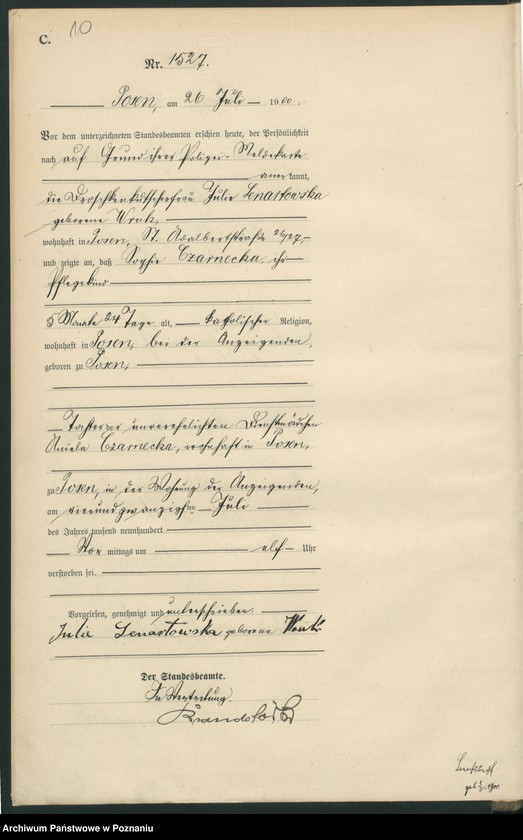 C. 10
Nr. 1527.
Posen, am 26 Juli 1900.
Vor dem unterzeichneten Standesbeamten erschien heute, der Persönlichkeit
nach auf Grund ihrer Polizei-Meldekarte
anerkannt,
die Droschkenkutscherfrau Julie Lenartowska
geborene
wohnhaft in Posen, St. Adalbertstraße 26/27,
und zeigte an, daß Sophie Czarnecka, ihr
Pflegekind
5 Monate 24 Tage alt, katholischer Religion,
wohnhaft in Posen, bei der Anzeigenden,
geboren zu Posen,
Tochter der unverehelichten Dienstmädchen
Aniela Czarnecka, wohnhaft in Posen,
zu Posen, in der Wohnung der Anzeigenden,
am vierundzwanzigsten Juli
des Jahres tausend neunhundert
Vor mittags um elf Uhr
verstorben sei.
Vorgelesen, genehmigt und unterschrieben.
Julie Lenartowska geborene
Der Standesbeamte.
In Vertretung.
Archiwum Państwowe w Poznaniu